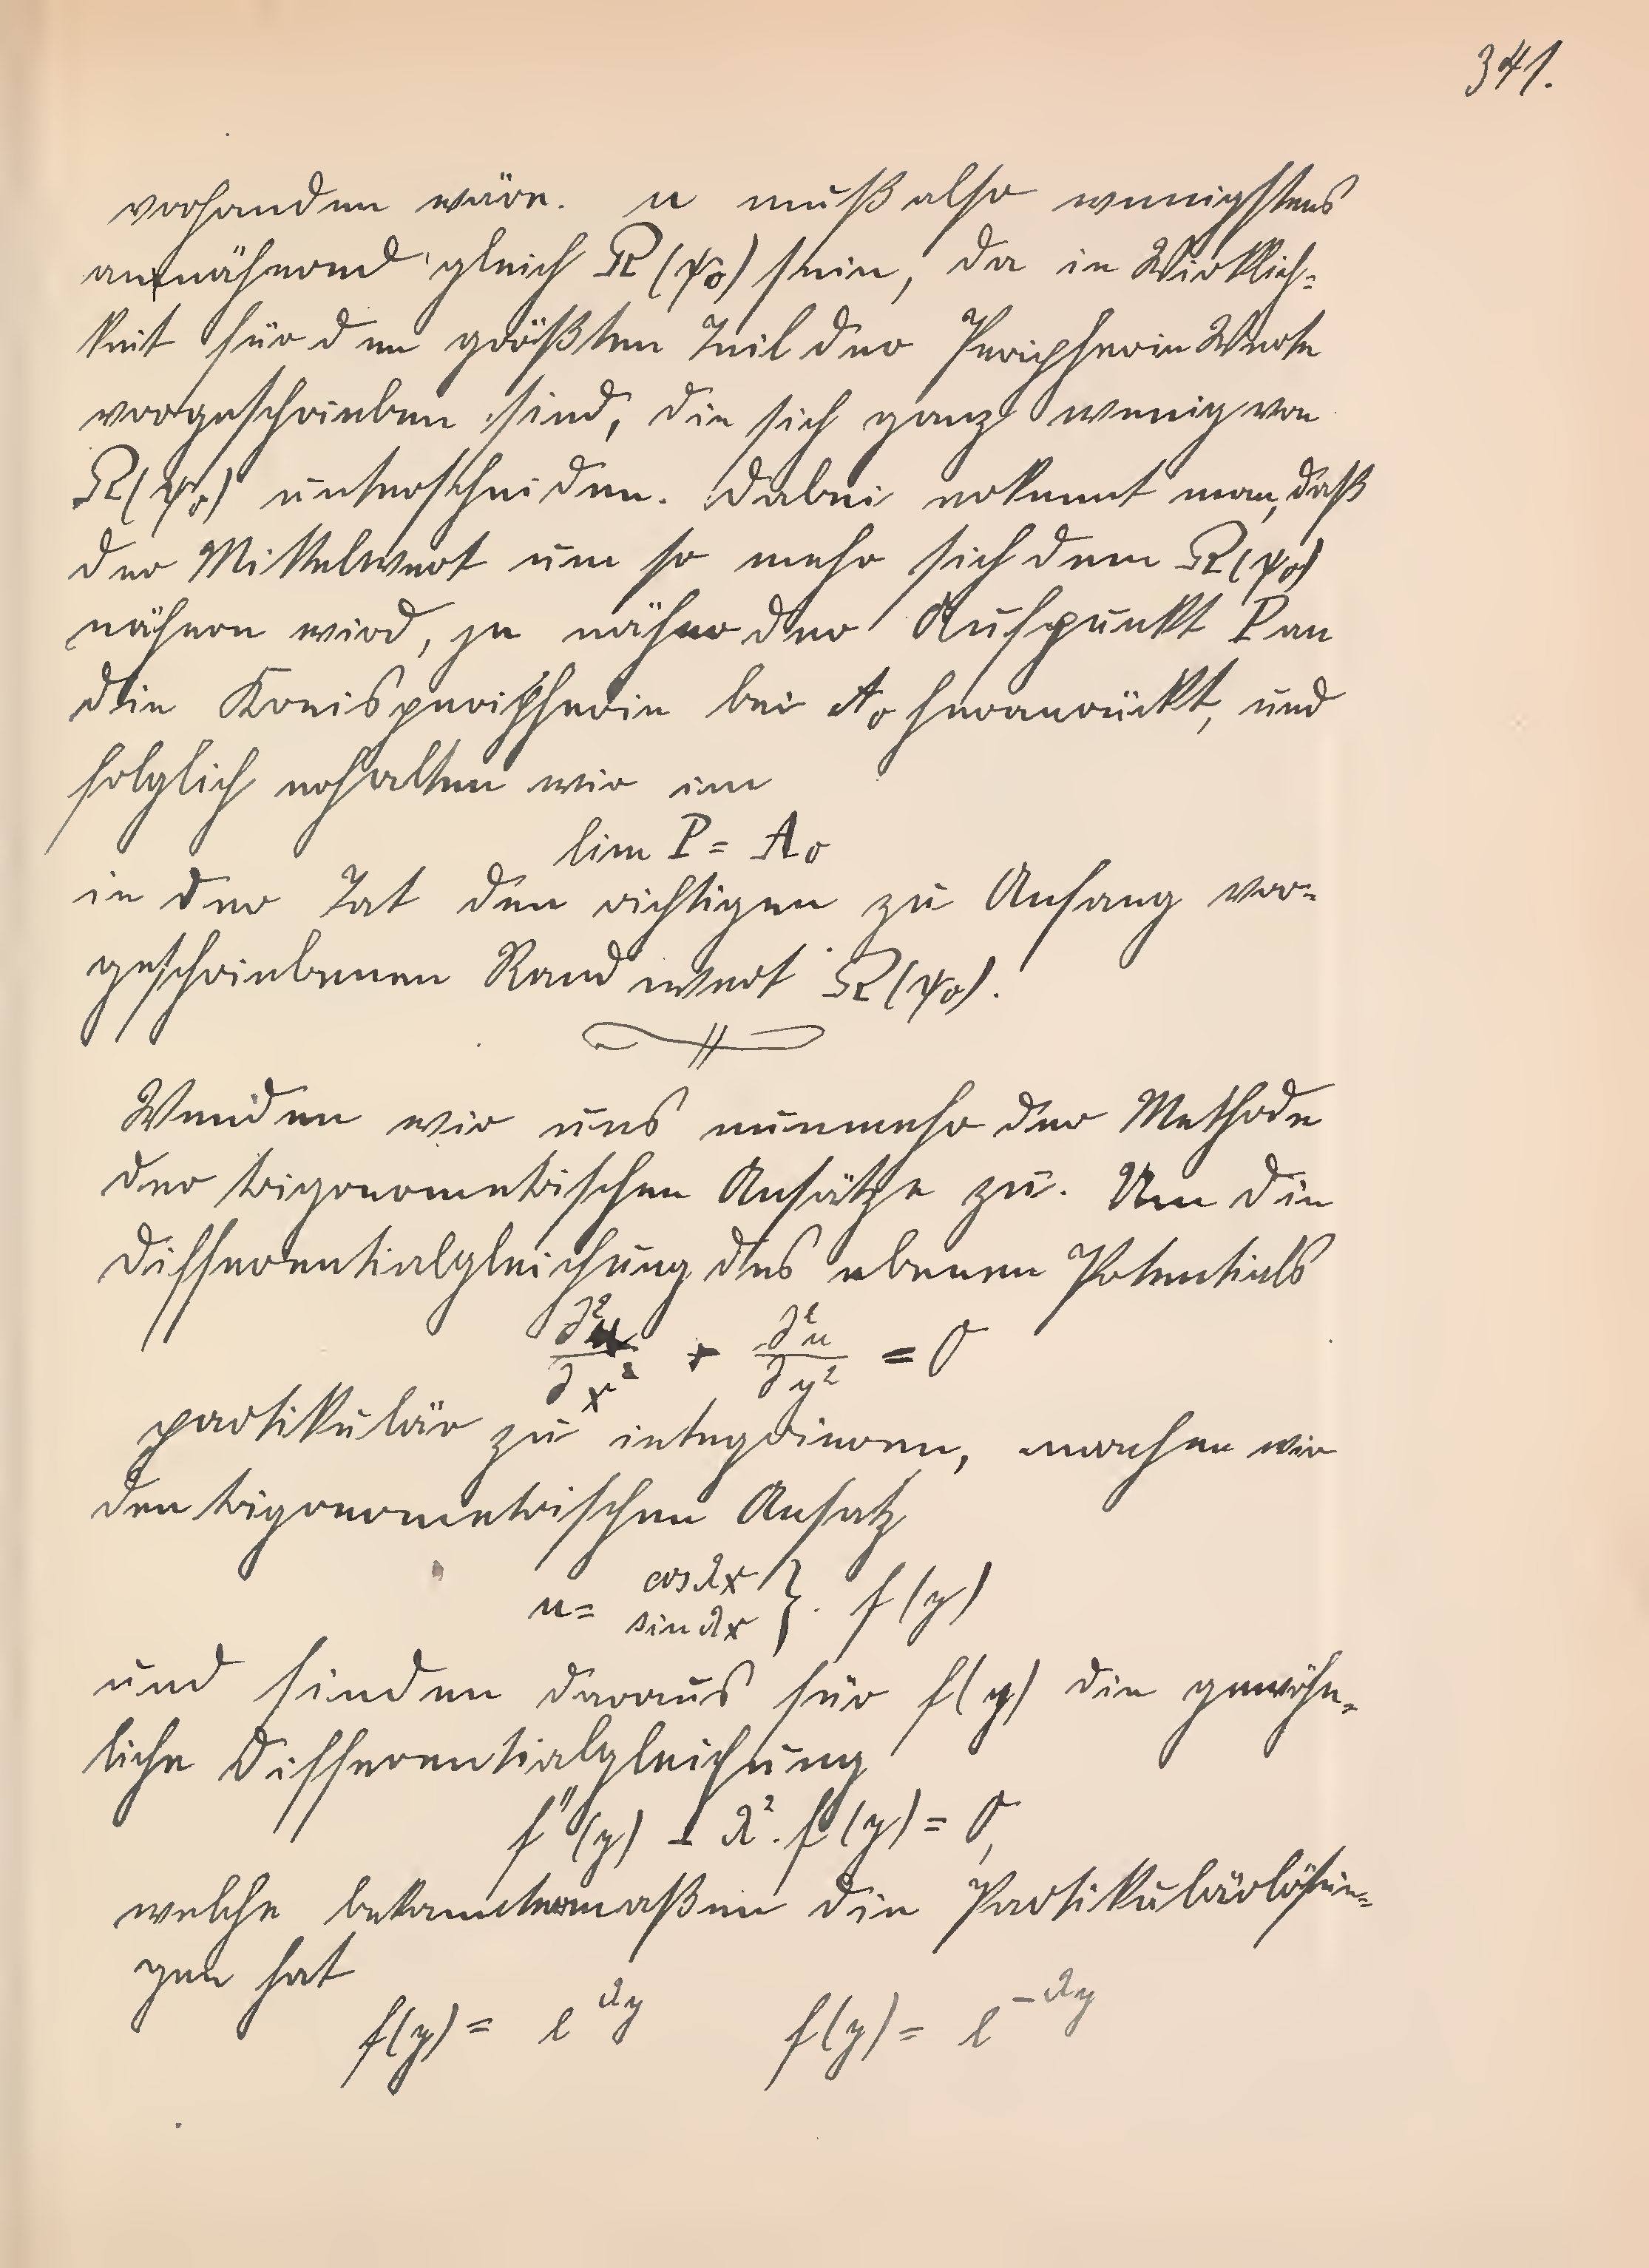 341.
vorhanden wäre. u muß also wenigstens
annähernd gleich Ω(ψ₀) sein, da in Wirklich=
keit für den größten Teil der Peripherie Werte
vorgeschrieben sind, die sich ganz wenig von
Ω(ψ₀) unterscheiden. Dabei erkennt man, daß
der Mittelwert um so mehr sich dem Ω(ψ₀)
nähern wird, je näher der Aufpunkt P an
die Kreisperipherie bei A₀ heranrückt, und
folglich erhalten wir im
lim P = A₀
in der Tat den richtigen zu Anfang vor=
geschriebenen Randwert Ω(ψ₀).
Wenden wir uns nunmehr der Methode
der trigonometrischen Ansätze zu. Um die
Differentialgleichung des ebenen Potentials
∂²u/∂x² + ∂²u/∂y² = 0
partikulär zu integrieren, machen wir
den trigonometrischen Ansatz
u = cos λx / sin λx } . f(y)
und finden daraus für f(y) die gewöhn=
liche Differentialgleichung
f''(y) - λ². f(y) = 0,
welche bekanntermaßen die Partikulärlösun=
gen hat
f(y) = e^{λy} f(y) = e^{-λy}